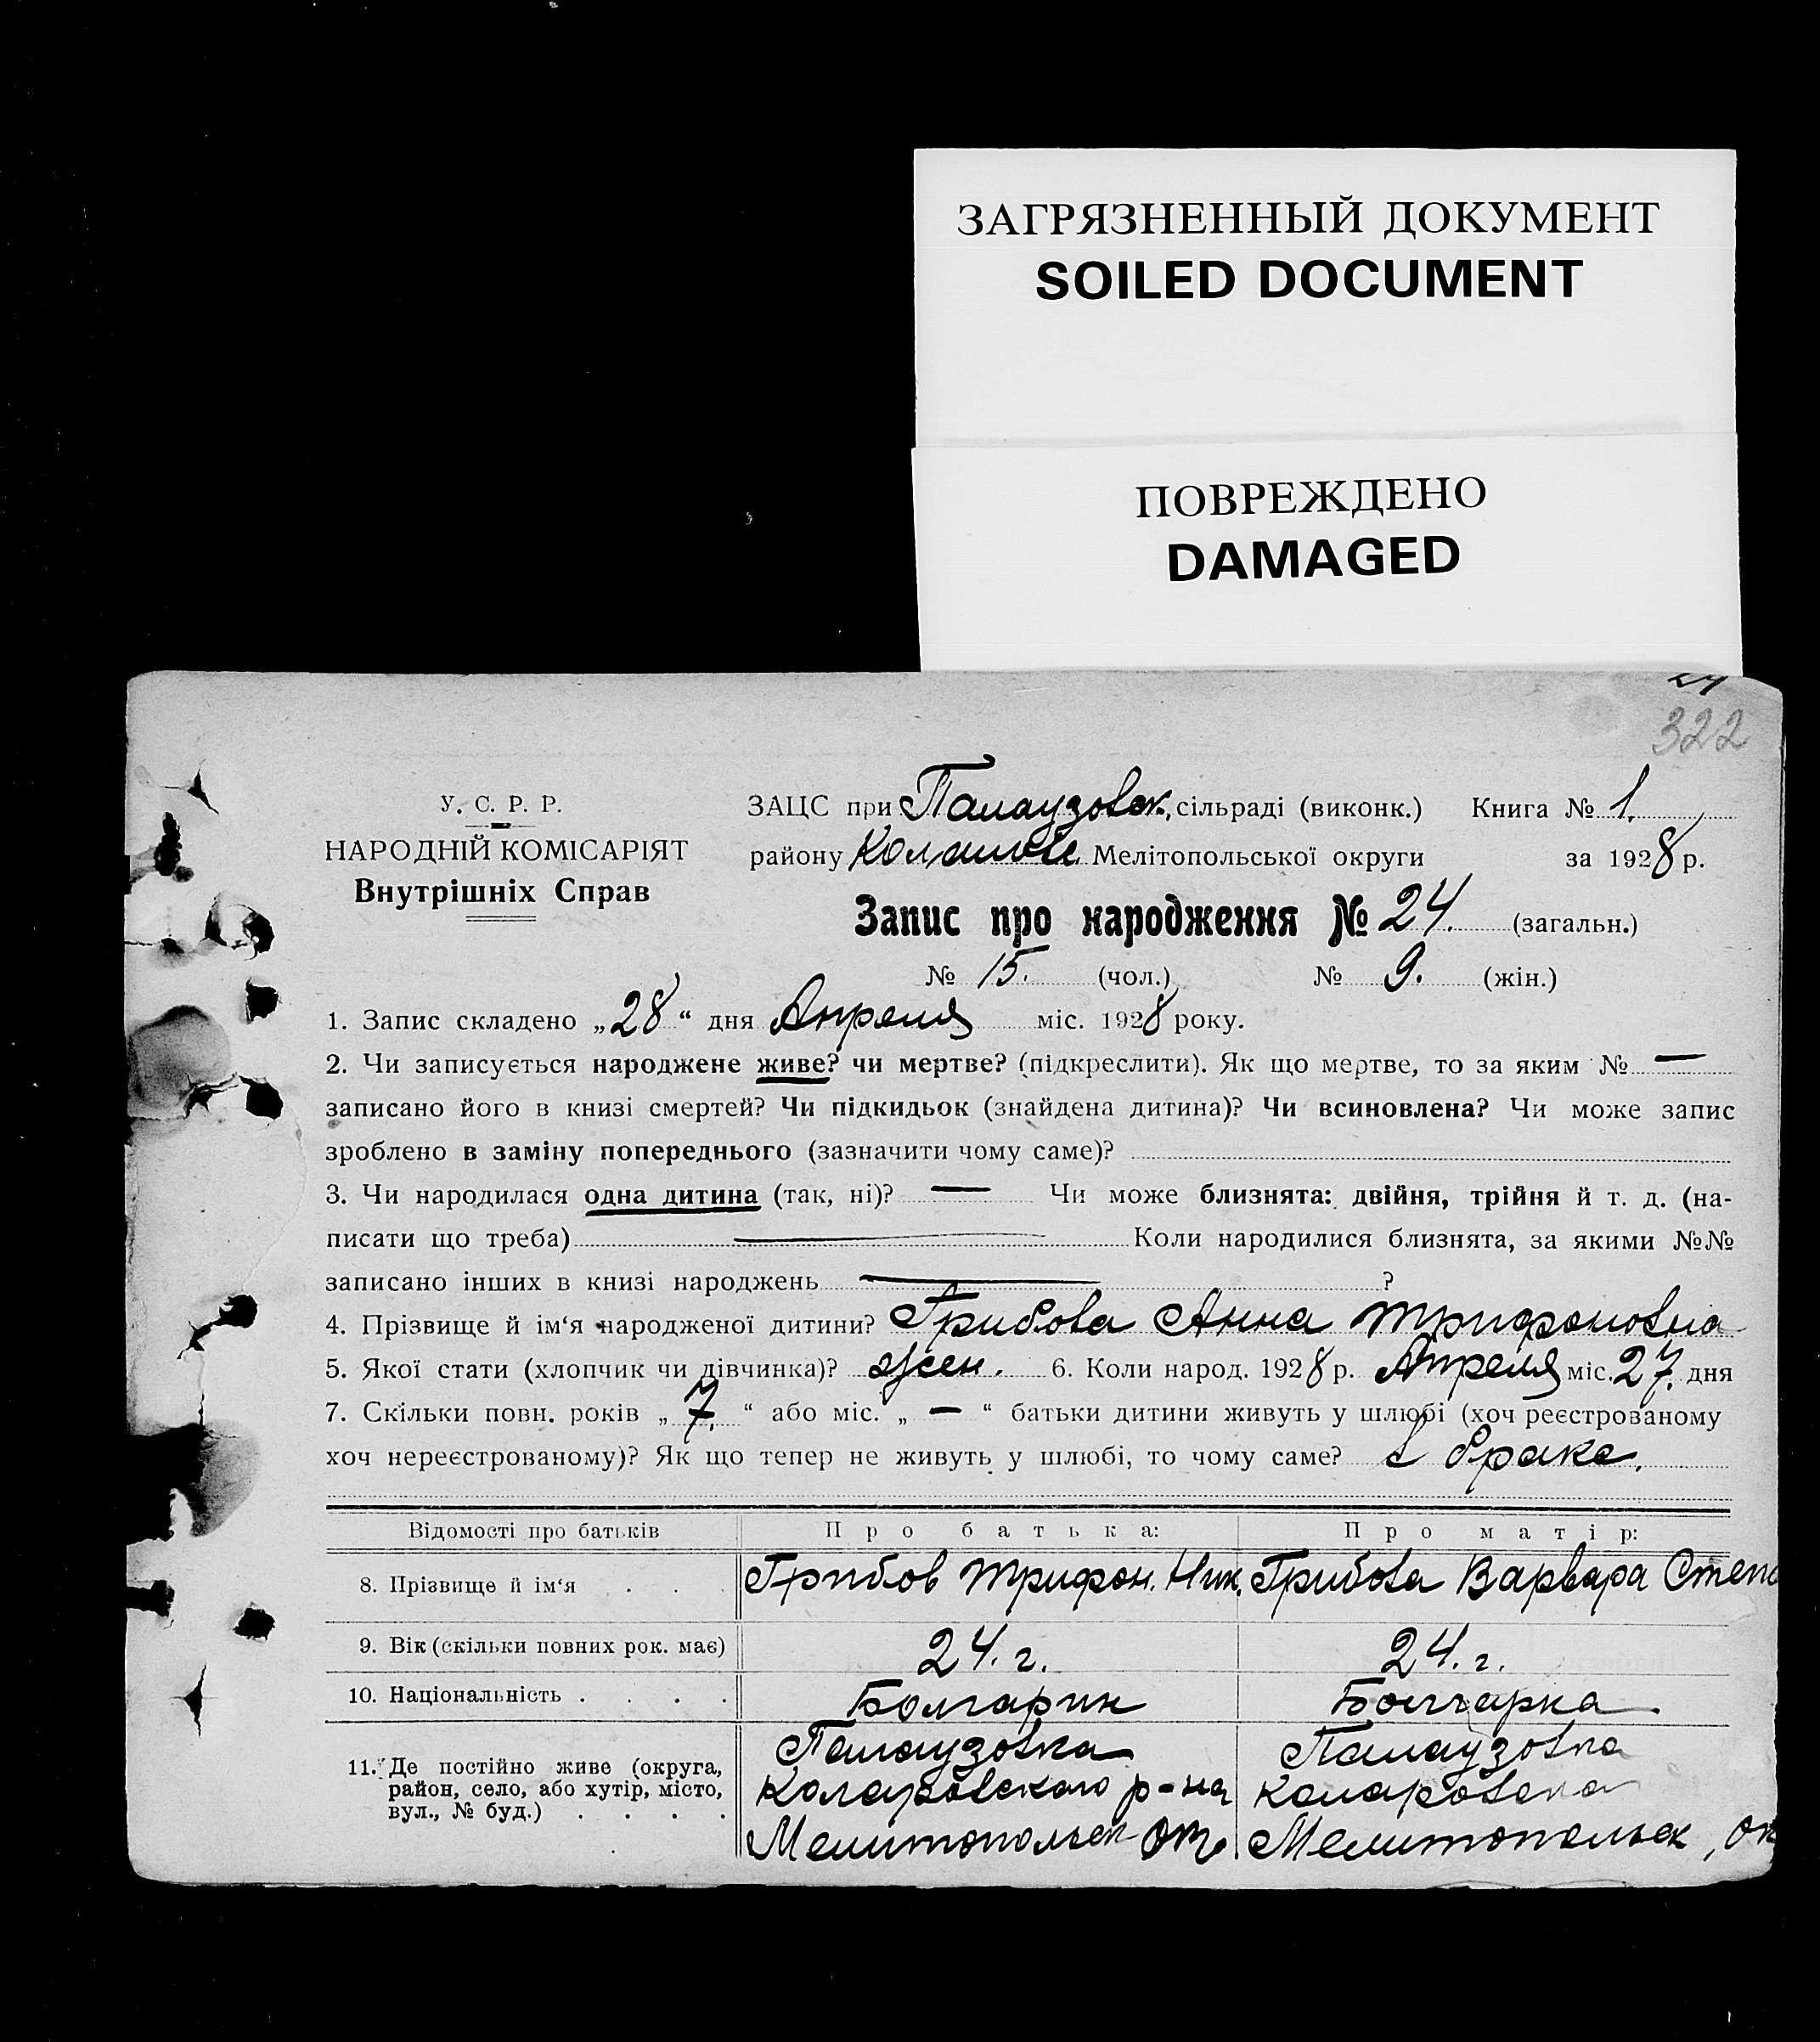 ЗАГРЯЗНЕННЫЙ ДОКУМЕНТ
SOILED DOCUMENT
ПОВРЕЖДЕНО
DAMAGED
24
322
У. С. Р. Р.
НАРОДНІЙ КОМІСАРІЯТ
Внутрішніх Справ
ЗАЦС при Палаузовск. сільраді (виконк.) Книга № 1.
району Мелітопольської округи за 1928 р.
Запис про народження № 24. (загальн.)
№ 15. (чол.) № 9. (жін.)
1. Запис складено „28“ дня Апреля міс. 1928 року.
2. Чи записується народжене живе? чи мертве? (підкреслити). Як що мертве, то за яким № —
записано його в книзі смертей? Чи підкидьок (знайдена дитина)? Чи всиновлена? Чи може запис
зроблено в заміну попереднього (зазначити чому саме)?
3. Чи народилася одна дитина (так, ні)? — Чи може близнята: двійня, трійня й т. д. (на-
писати що треба) — Коли народилися близнята, за якими №№
записано інших в книзі народжень — ?
4. Прізвище й ім‘я народженої дитини? Грибова Анна Трифоновна
5. Якої стати (хлопчик чи дівчинка)? жен. 6. Коли народ. 1928 р. Апреля міс. 27. дня
7. Скільки повн. років „7.“ або міс. „—“ батьки дитини живуть у шлюбі (хоч реєстрованому
хоч нереєстрованому)? Як що тепер не живуть у шлюбі, то чому саме? в браке.
Відомості про батьків Про батька: Про матір:
8. Прізвище й ім‘я . . . Грибов Трифон. Ник. Грибова Варвара Степа
9. Вік (скільки повних рок. має) 24. г. 24. г.
10. Національність . . . . Болгарин Болгарка.
11. Де постійно живе (округа,
район, село, або хутір, місто,
вул., № буд.) . . . .
Палаузовка
Коларовского р-на
Мелитопольск окр.
Палаузовка
Коларовска
Мелитопольск, ок